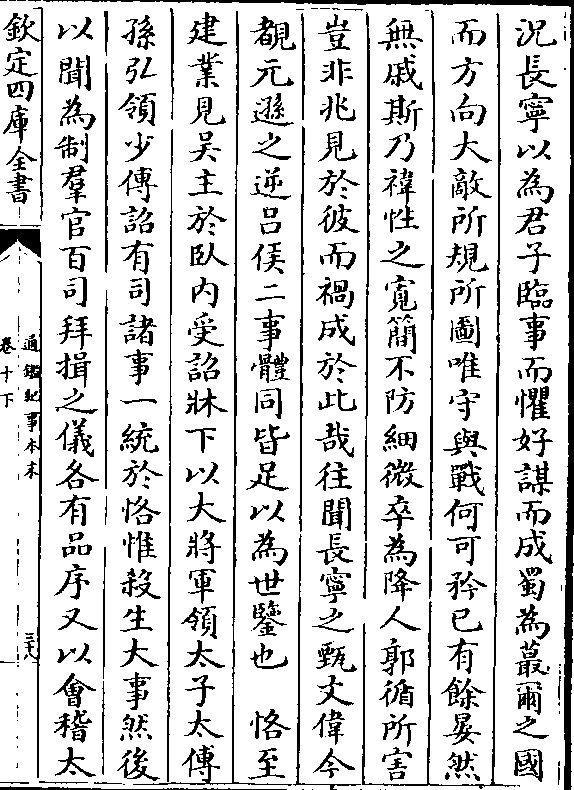 況長寧以為君子臨事而懼好謀而成蜀為蕞爾之國
而方向大敵所規所圖唯守與戰何可矜已有餘晏然
無戚斯乃禕性之寛簡不防細微卒為降人郭循所害
豈非兆見於彼而禍成於此哉往聞長寧之甄文偉今
覩元遜之逆吕侯二事體同皆足以為世鑒也　恪至
建業見吳主於臥内受詔牀下以大將軍領太子太傅
孫弘領少傅詔有司諸事一統於恪惟殺生大事然後
以聞為制羣官百司拜揖之儀各有品序又以會稽太
欽定四庫全書
通鑑紀事本末
卷十下
三十八